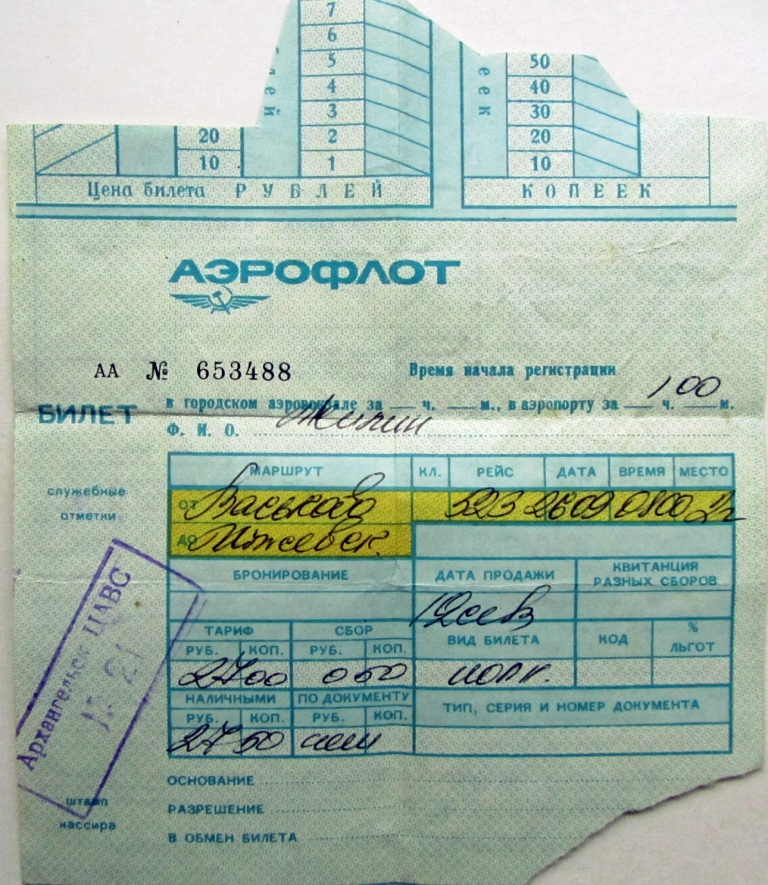 7
6
5
4
3
20 2
10 1
50
40
30
20
10
Цена билета РУБЛЕЙ КОПЕЕК
АЭРОФЛОТ
АА № 653488
Время начала регистрации 1 00
в городском аэровокзале за — ч. — м., в аэропорту за — ч. — м.
БИЛЕТ
Ф. И. О. Жилин
служебные
отметки
МАРШРУТ КЛ. РЕЙС ДАТА ВРЕМЯ МЕСТО
ОТ Васьково 523 2609 0800
ДО Ижевск.
БРОНИРОВАНИЕ ДАТА ПРОДАЖИ КВИТАНЦИЯ
РАЗНЫХ СБОРОВ
12сев
ТАРИФ СБОР ВИД БИЛЕТА КОД %
ЛЬГОТ
РУБ. КОП. РУБ. КОП.
27 00 0 50 полн.
НАЛИЧНЫМИ ПО ДОКУМЕНТУ ТИП, СЕРИЯ И НОМЕР ДОКУМЕНТА
РУБ. КОП. РУБ. КОП.
27 50
Архангельск ЦАВС
№ 21
ОСНОВАНИЕ
штамп
кассира
РАЗРЕШЕНИЕ
В ОБМЕН БИЛЕТА